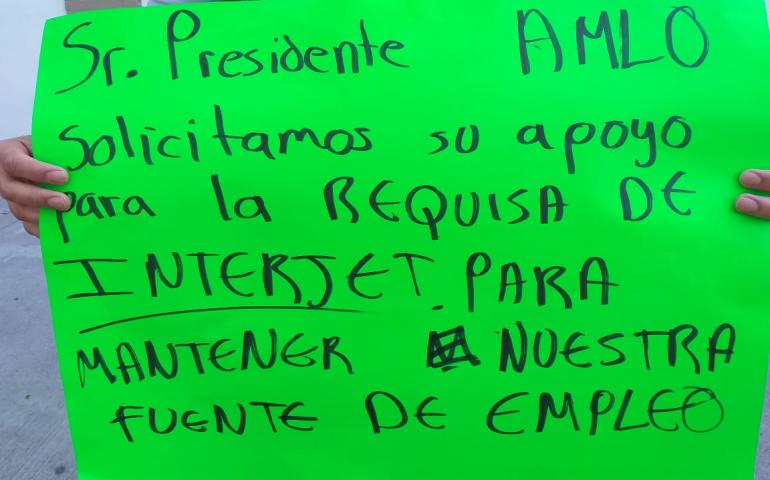 Sr. Presidente AMLO
Solicitamos su apoyo
para la REQUISA DE
INTERJET. PARA
MANTENER NUESTRA
FUENTE DE EMPLEO